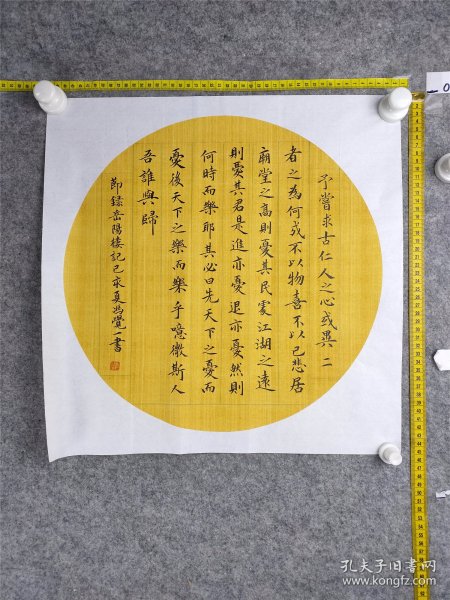 予嘗求古仁人之心或異二
者之為何或不以物喜不以己悲居
廟堂之高則憂其民處江湖之遠
則憂其君是進亦憂退亦憂然則
何時而樂耶其必曰先天下之憂而
憂後天下之樂而樂乎噫微斯人
吾誰與歸
節録岳陽樓記己亥夏馮覺一書
孔夫子旧书网
www.kongfz.com